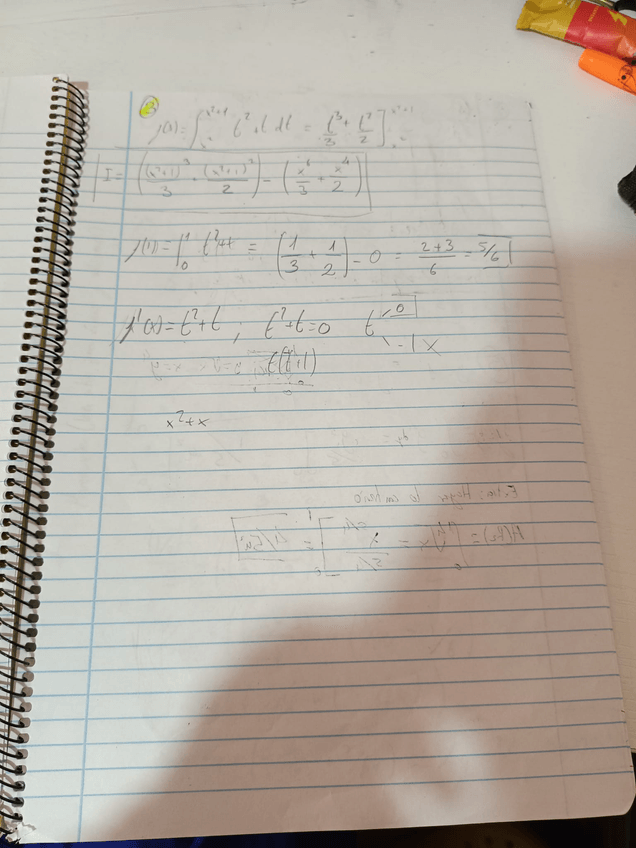 2
f(x) = ∫_{x²}^{x²+1} t² + t dt = t³/3 + t²/2 ]_{x²}^{x²+1}
I = ((x²+1)³/3 + (x²+1)²/2) - (x⁶/3 + x⁴/2)
f(1) = ∫_0^1 t²+t = (1/3 + 1/2) - 0 = (2+3)/6 = 5/6
f'(x) = t² + t ; t² + t = 0 t 0
-1 x
t(t+1)
x² + x